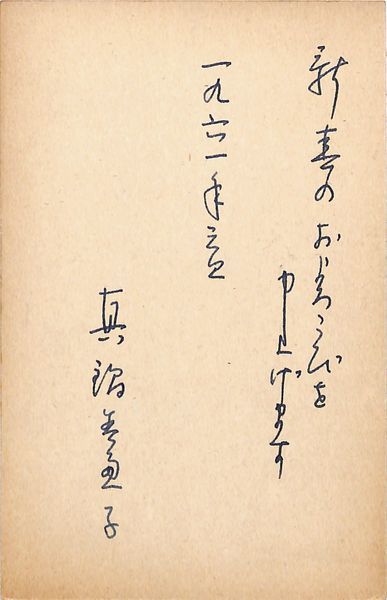 新春のおよろこびを
申上げます
一九六一年元旦
真鍋美恵子